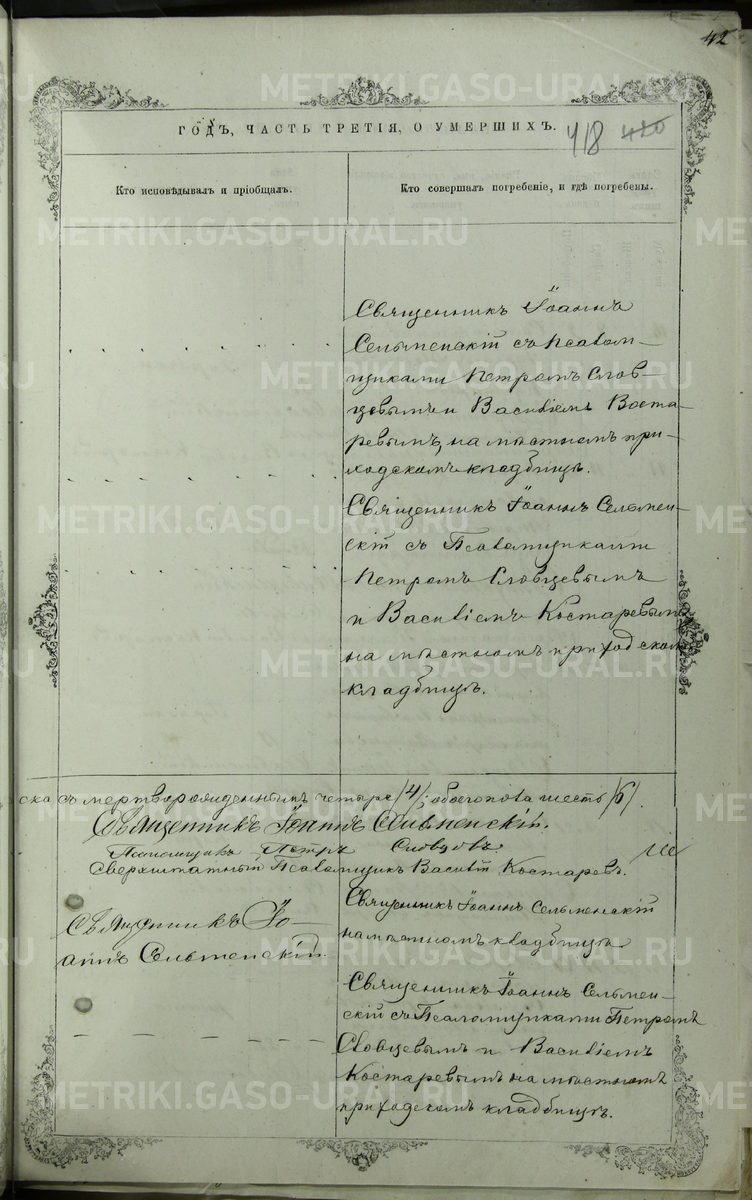 42
ГОДЪ, ЧАСТЬ ТРЕТІЯ, О УМЕРШИХЪ.
418 420
Кто исповѣдывалъ и пріобщалъ.
Кто совершалъ погребеніе, и гдѣ погребены.
Священникъ Іоаннъ
Сельменскій съ Псалом-
щиками Петромъ Слов-
цовымъ и Василіемъ Коста-
ревымъ, на мѣстномъ при-
ходскомъ кладбищѣ.
Священникъ Іоаннъ Сельмен-
скій съ Псаломщиками
Петромъ Словцевымъ
и Василіемъ Костаревымъ
на мѣстномъ приходскомъ
кладбищѣ.
ска съ мертворожденнымъ четыре /4/, обоего пола шесть /6/.
Священникъ Іоаннъ Сельменскій.
Псаломщикъ Петръ Словцовъ
Сверхштатный Псаломщикъ Василій Костаревъ.
Священникъ Іо-
аннъ Сельменскій.
Священникъ Іоаннъ Сельменскій
на мѣстномъ кладбищѣ
Священникъ Іоаннъ Сельмен-
скій съ Псаломщиками Петромъ
Словцевымъ и Василіемъ
Костаревымъ на мѣстномъ
приходскомъ кладбищѣ.
METRIKI.GASO-URAL.RU